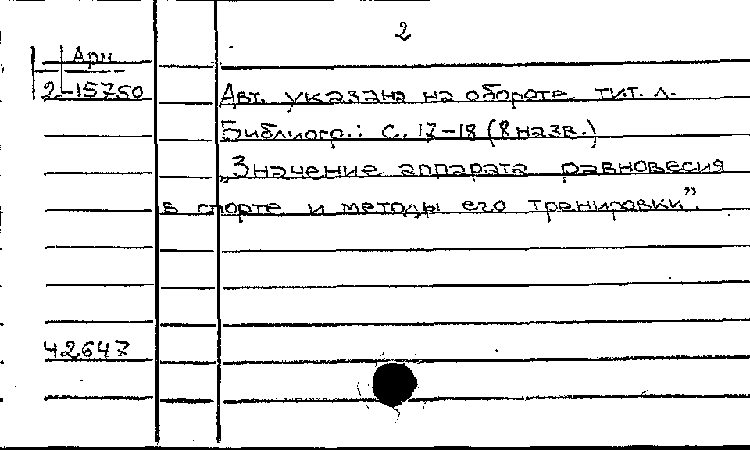 2
Арм
2-15750
Авт. указана на обороте тит. л.
Библиогр.: с. 17-18 (8 назв.)
„Значение аппарата равновесия
в спорте и методы его тренировки”.
42647